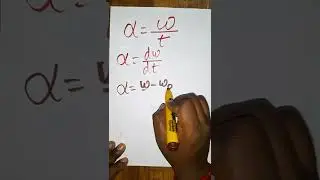 α = ω/t
α = dω/dt
α = ω - ω₀